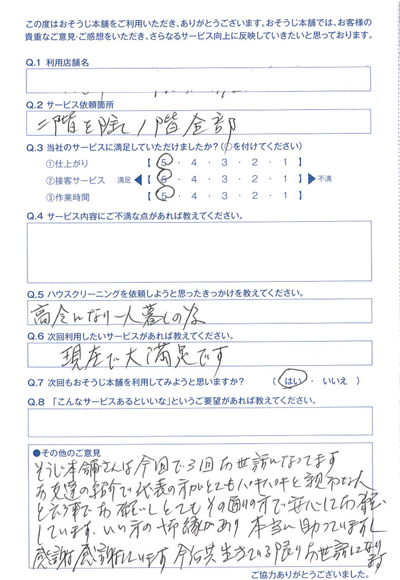 この度はおそうじ本舗をご利用いただき、ありがとうございます。おそうじ本舗では、お客様の
貴重なご意見・ご感想をいただき、さらなるサービス向上に反映していきたいと思っております。
Q.1 利用店舗名
Q.2 サービス依頼箇所
二階を除く1階全部
Q.3 当社のサービスに満足していただけましたか?(○を付けてください)
①仕上がり 【 5 ・ 4 ・ 3 ・ 2 ・ 1 】
②接客サービス 満足 ◀【 5 ・ 4 ・ 3 ・ 2 ・ 1 】▶ 不満
③作業時間 【 5 ・ 4 ・ 3 ・ 2 ・ 1 】
Q.4 サービス内容にご不満な点があれば教えてください。
Q.5 ハウスクリーニングを依頼しようと思ったきっかけを教えてください。
高令になり一人暮しの為
Q.6 次回利用したいサービスがあれば教えてください。
現在で大満足です
Q.7 次回もおそうじ本舗を利用してみようと思いますか? ( はい ・ いいえ )
Q.8 「こんなサービスあるといいな」というご要望があれば教えてください。
●その他のご意見
そうじ本舗さんは今回で3回お世話になってます
お友達の紹介で代表の方がとてもハキハキと親切な人
と云う事でお願いしとてもその通りの方で安心してお願い
しています。いい方の御縁があり本当に助っていますし
感謝感謝しています 今后共生きている限りお世話になります
ご協力ありがとうございました。